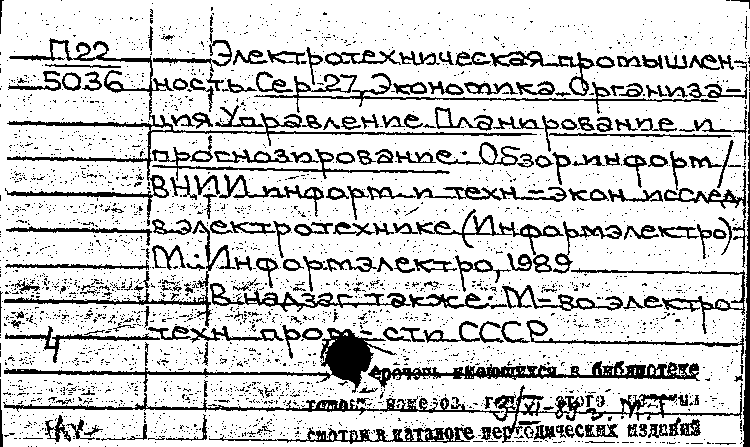 П22
5036
Электротехническая промышлен-
ность. Сер. 27, Экономика. Организа-
ция. Управление. Планирование и
прогнозирование: Обзор. информ /
ВНИИ информ. и техн.-экон. исслед.
в электротехнике (Информэлектро).-
М.: Информэлектро, 1989
В надзаг. также: М-во электро-
техн. пром-сти СССР.
4
еречень имеющихся в библиотеке
томов, номеров, этого издания
смотри в каталоге периодических изданий